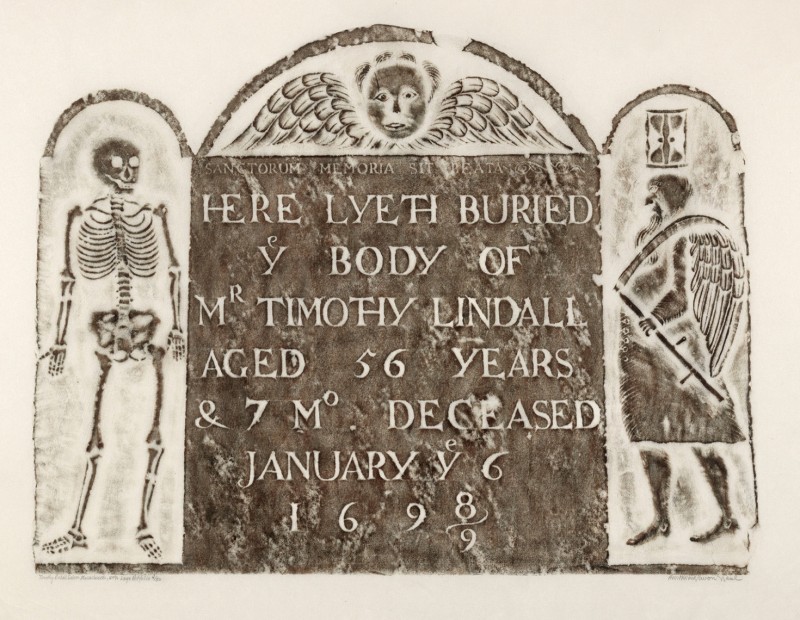 SANCTORUM MEMORIA SIT BEATA
HERE LYETH BURIED
Yᵉ BODY OF
Mᴿ TIMOTHY LINDALL
AGED 56 YEARS
& 7 Mᵒ. DECEASED
JANUARY Yᵉ 6
1 6 9 8/9